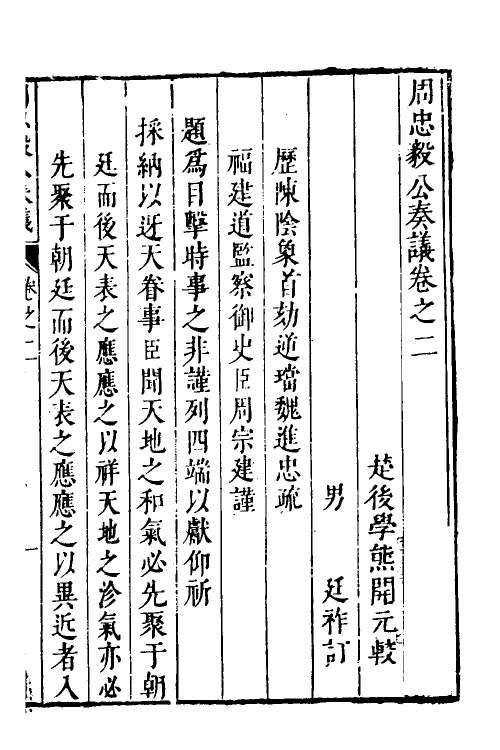 周忠毅公奏議卷之二
楚後學熊開元較
男　廷祚訂
歷陳陰象首劾逆璫魏進忠疏
福建道監察御史臣周宗建謹
題爲目擊時事之非謹列四端以獻仰祈
採納以迓天眷事臣聞天地之和氣必先聚于朝
廷而後天表之應應之以祥天地之沴氣亦必
先聚于朝廷而後天表之應應之以異近者入
卷之二
一